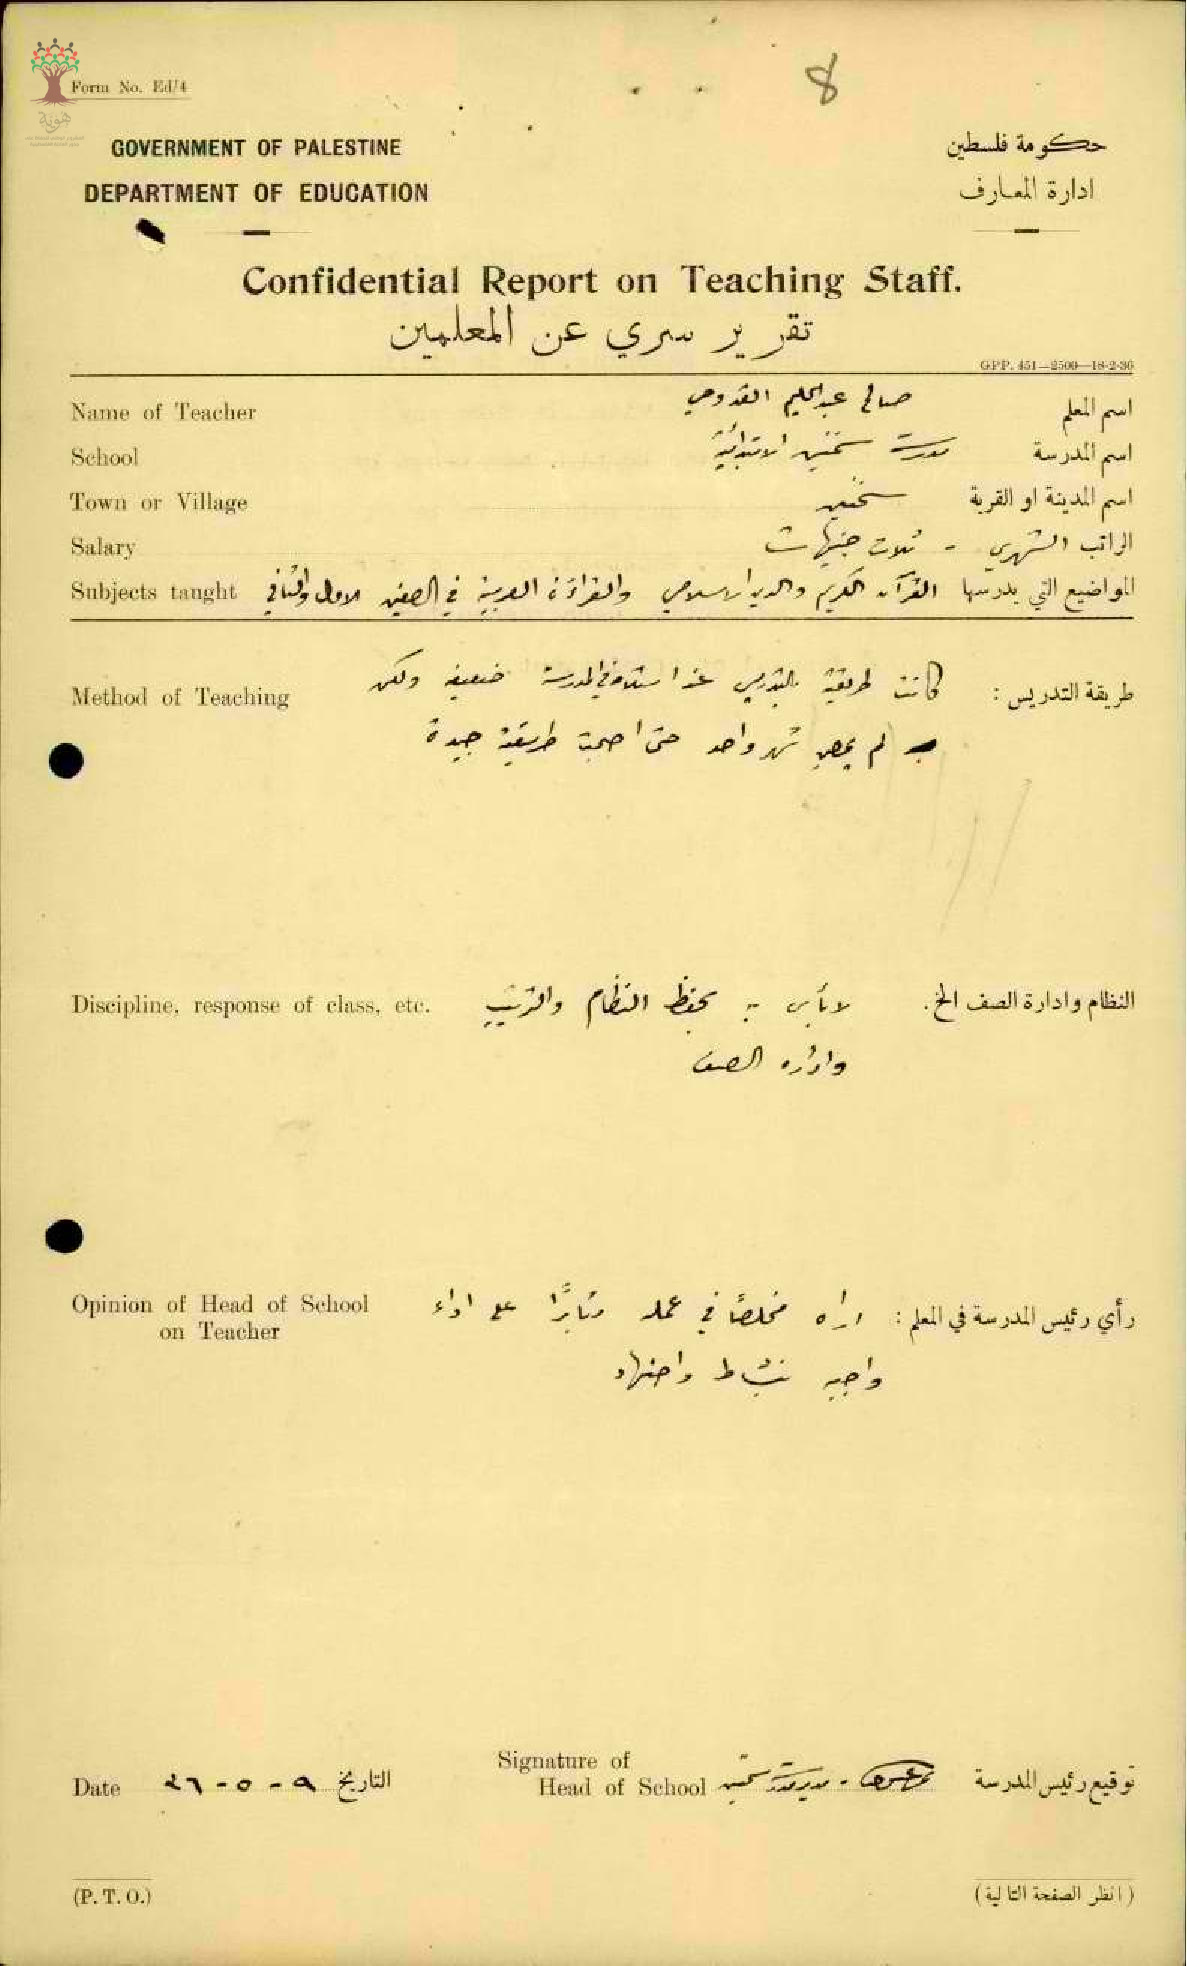 8
Form No. Ed/4
هوية
GOVERNMENT OF PALESTINE
حكومة فلسطين
DEPARTMENT OF EDUCATION
ادارة المعارف
Confidential Report on Teaching Staff.
تقرير سري عن المعلمين
GPP. 451—2500—18-2-36
Name of Teacher صالح عبدالحليم القدومي اسم المعلم
School مدرسة سخنين الابتدائية اسم المدرسة
Town or Village سخنين اسم المدينة او القرية
Salary ثلاث جنيهات - الراتب الشهري
Subjects taught القرآن الكريم والدين الاسلامي والقراءة العربية في الصفين الاول والثاني المواضيع التي يدرسها
Method of Teaching كانت طريقة بالتدريس عند استلامه المدرسة ضعيفة ولكن طريقة التدريس :
لم يمض شهر واحد حتى اصبحت طريقته جيدة
Discipline, response of class, etc. لا بأس به بحفظ النظام والترتيب النظام وادارة الصف الخ.
وادارة الصف
Opinion of Head of School اراه مخلصًا في عمله مثابرًا على اداء رأي رئيس المدرسة في المعلم :
on Teacher
واجبه بنشاط واجتهاد
Signature of
Date ٩ - ٥ - ٣٦ التاريخ Head of School مدير مدرسة سخنين توقيع رئيس المدرسة
(P. T. O.)
(انظر الصفحة التالية)